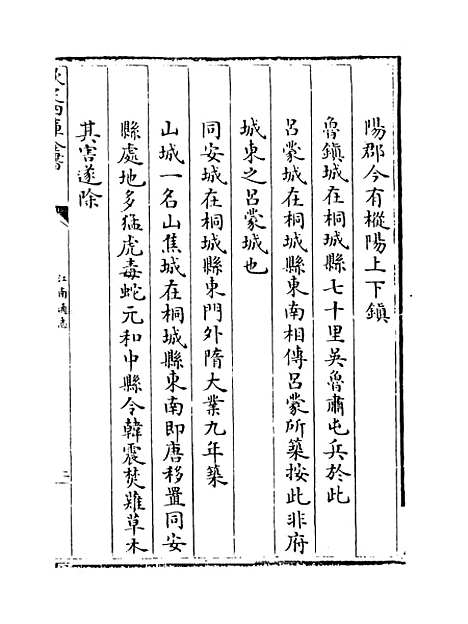 陽郡今有樅陽上下鎮
魯鎮城在桐城縣七十里吳魯肅屯兵於此
呂蒙城在桐城縣東南相傳呂蒙所築按此非府
城東之呂蒙城也
同安城在桐城縣東門外隋大業九年築
山城一名山焦城在桐城縣東南即唐移置同安
縣處地多猛虎毒蛇元和中縣令韓震焚薙草木
其害遂除
欽定四庫全書
江南通志